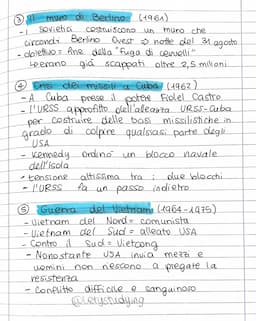 ③ Il muro di Berlino (1961)
- I sovietici costruiscono un muro che
circonda Berlino Ovest → notte del 31 agosto
- obiettivo = fine della "fuga di cervelli"
↳ erano già scappati oltre 2,5 milioni
④ Crisi dei missili a Cuba (1962)
- A Cuba prese il potere Fidel Castro
- l'URSS approfittò dell'alleanza URSS-Cuba
per costruire delle basi missilistiche in
grado di colpire qualsiasi parte degli
USA
- Kennedy ordinò un blocco navale
dell'isola
- tensione altissima tra i due blocchi
- l'URSS fa un passo indietro
⑤ Guerra del Vietnam (1964-1975)
- Vietnam del Nord = comunista
- Vietnam del Sud = alleato USA
- Contro il Sud = Vietcong
- Nonostante USA invia mezzi e
uomini non riescono a piegare la
resistenza
- Conflitto difficile e sanguinoso
@letystudying